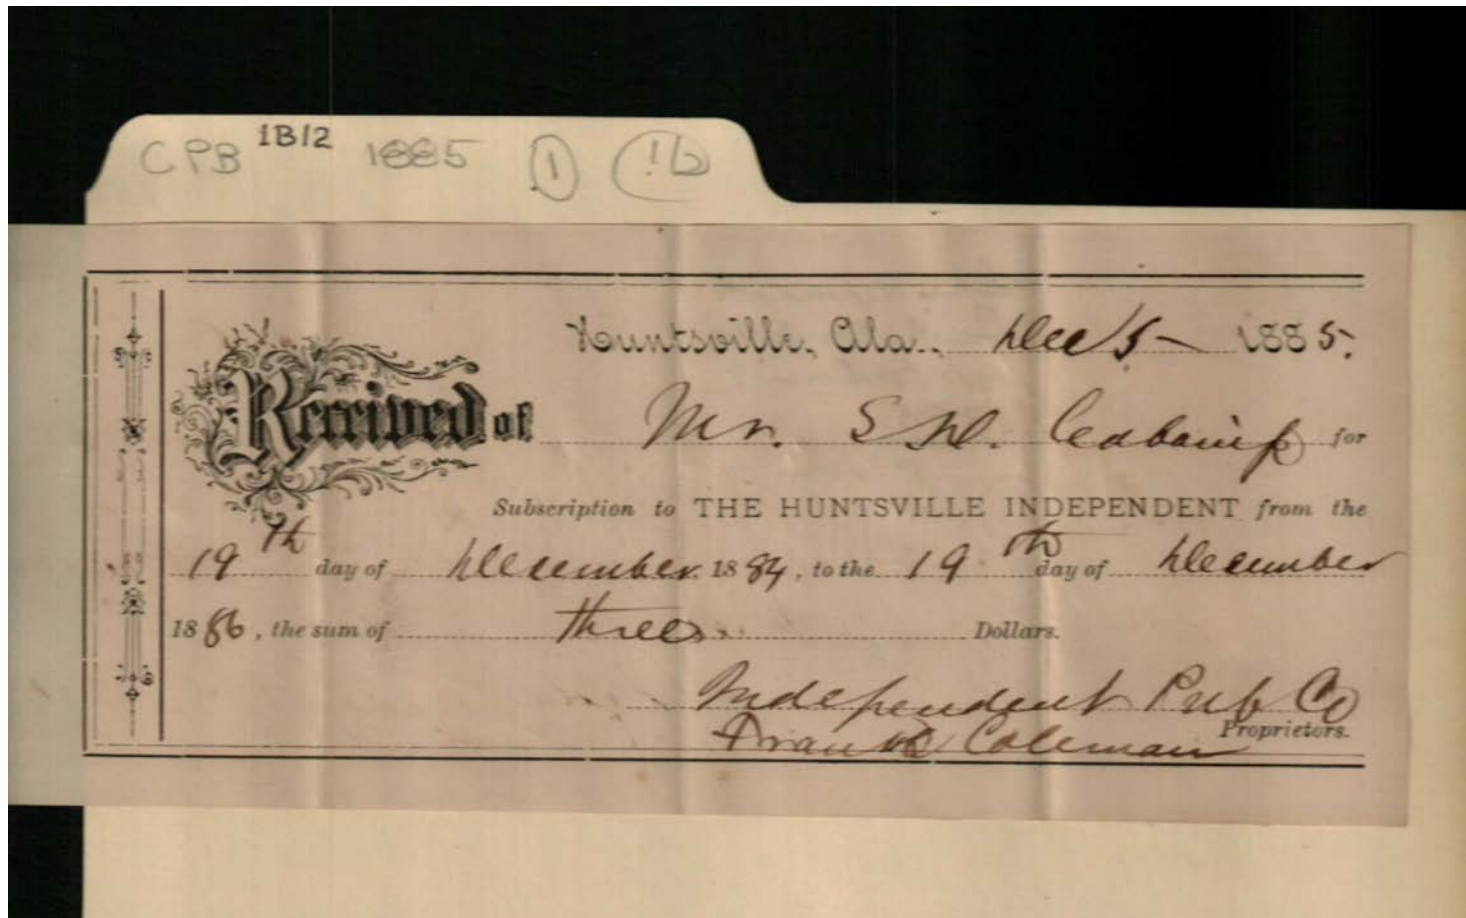 CPB 1B12 1885 1 1b
Huntsville, Ala., Dec 5 1885.
Received of Mr. S H. for
Subscription to THE HUNTSVILLE INDEPENDENT from the
19th day of December 1884, to the 19th day of December
1886, the sum of three Dollars.
Independent Pub Co
Proprietors.
Frank Coleman